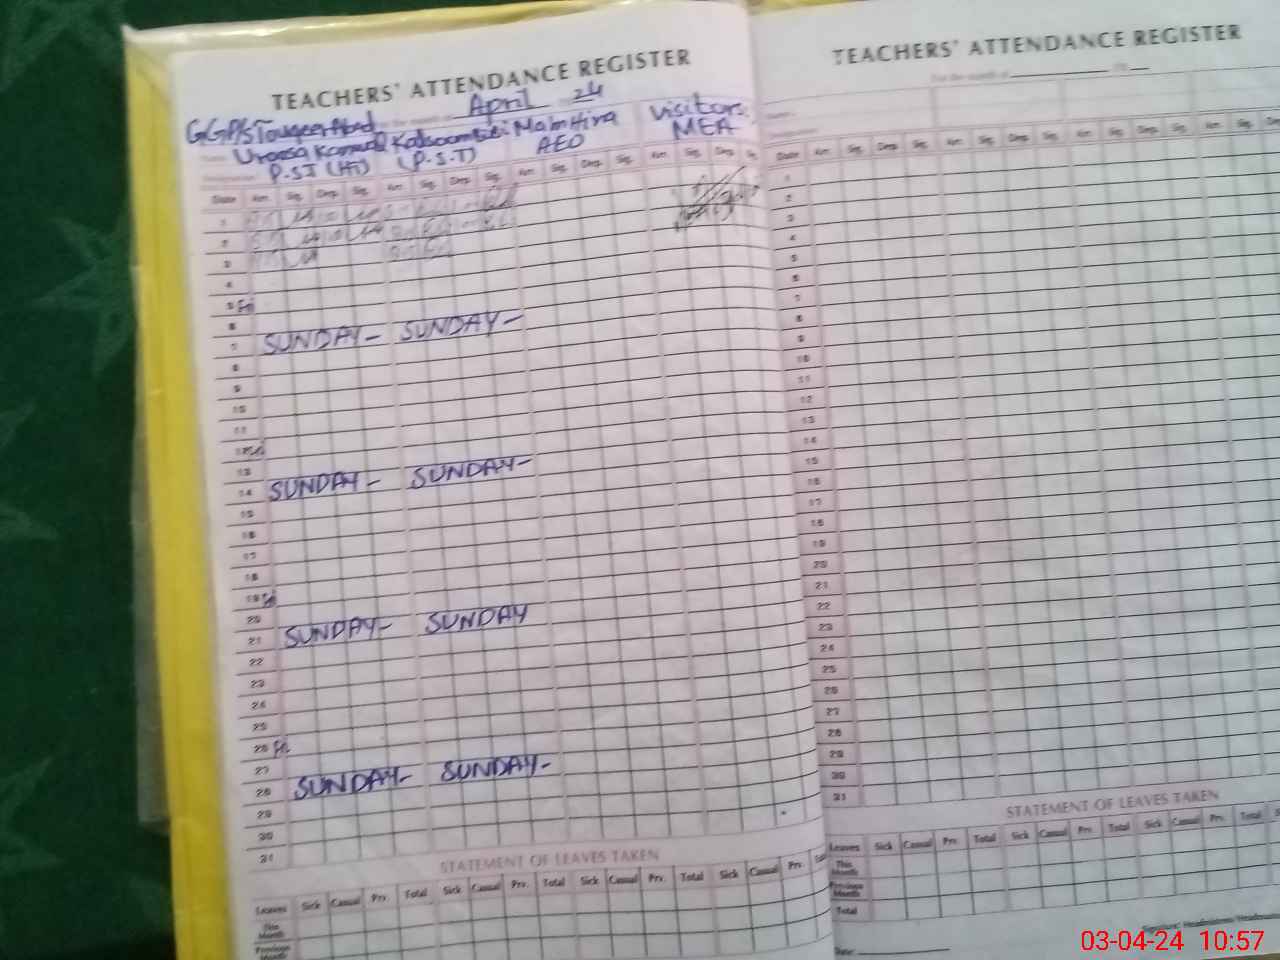 TEACHERS' ATTENDANCE REGISTER
April 24
GGP/S Touqeer Abad
Uroosa Kanwal Kalsoom Bibi Mam Hira Visitors
P.S.T (Hi) (P.S.T) AEO MEA
Date Arr. Sig. Dep. Sig. Arr. Sig. Dep. Sig. Arr. Sig. Dep. Sig. Arr. Sig. Dep.
1
2
3
4
5 Fri
6
7 SUNDAY- SUNDAY-
8
9
10
11
12
13
14 SUNDAY- SUNDAY-
15
16
17
18
19
20
21 SUNDAY- SUNDAY
22
23
24
25
26 Fri
27
28 SUNDAY- SUNDAY-
29
30
31
STATEMENT OF LEAVES TAKEN
Leaves Sick Casual Prv. Total Sick Casual Prv. Total Sick Casual Prv. Total Sick Casual Prv.
This Month
Previous Month
TEACHERS' ATTENDANCE REGISTER
For the month of
Date Arr. Sig. Dep. Sig. Arr. Sig. Dep. Sig. Arr. Sig. Dep. Sig.
1
2
3
4
5
6
7
8
9
10
11
12
13
14
15
16
17
18
19
20
21
22
23
24
25
26
27
28
29
30
31
STATEMENT OF LEAVES TAKEN
Leaves Sick Casual Prv. Total Sick Casual Prv. Total Sick Casual Prv. Total
This Month
Previous Month
Total
Date:
03-04-24 10:57